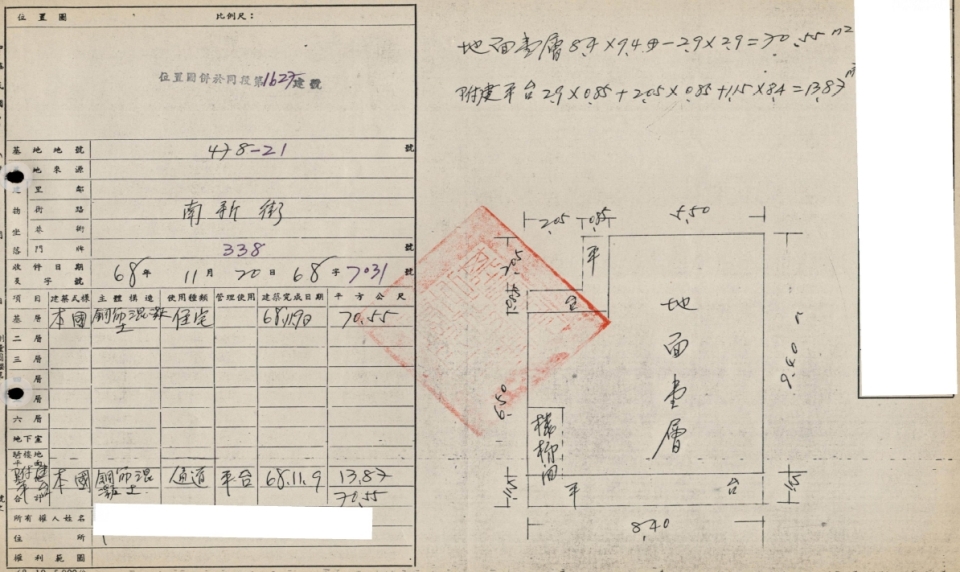 位置圖 比例尺：
位置圖併於同段第1627建號
基地地號 478-21 號
地來源
里鄰
街路 南新街
巷街
門牌 338 號
收件日期 68年11月20日 68字7031號
字號
項目 建築式樣 主體構造 使用種類 管理使用 建築完成日期 平方公尺
基層 本國 鋼筋混凝土 住宅 68.11.9日 70.55
二層
三層
層
層
六層
地下室
騎樓地
附建平台 本國 鋼筋混凝土 通道 平台 68.11.9 13.87
合 70.55
所有權人姓名
住所
權利範圍
地面壹層 8.4×9.40-2.9×2.9=70.55 m2
附建平台 2.9×0.85+2.05×0.85+1.15×8.4=13.87 m2
2.05 0.85 5.50
平
台
地面壹層
9.40
6.50
樓梯間
平 台
1.15 1.15
8.40